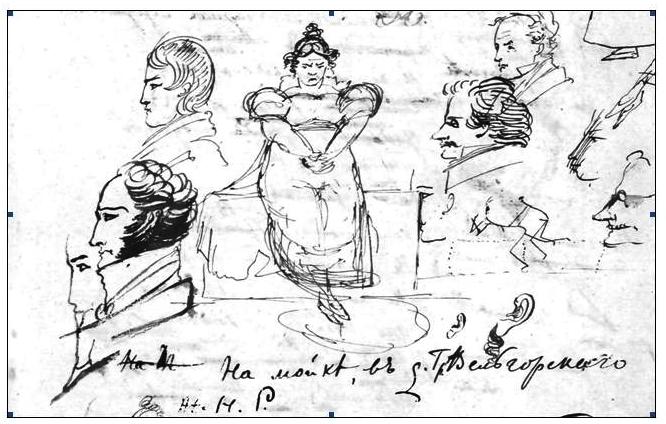 На мойкѣ, въ д. Гр. Вельгорскаго
Н. Р.